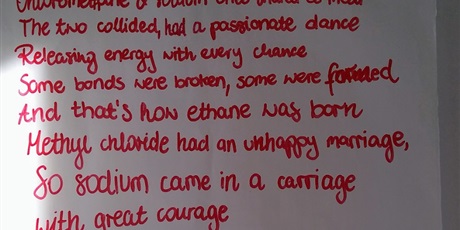 Chloromethane & sodium once
The two collided, had a passionate dance
Releasing energy with every chance
Some bonds were broken, some were formed
And that's how ethane was born
Methyl chloride had an unhappy marriage,
So sodium came in a carriage
with great courage